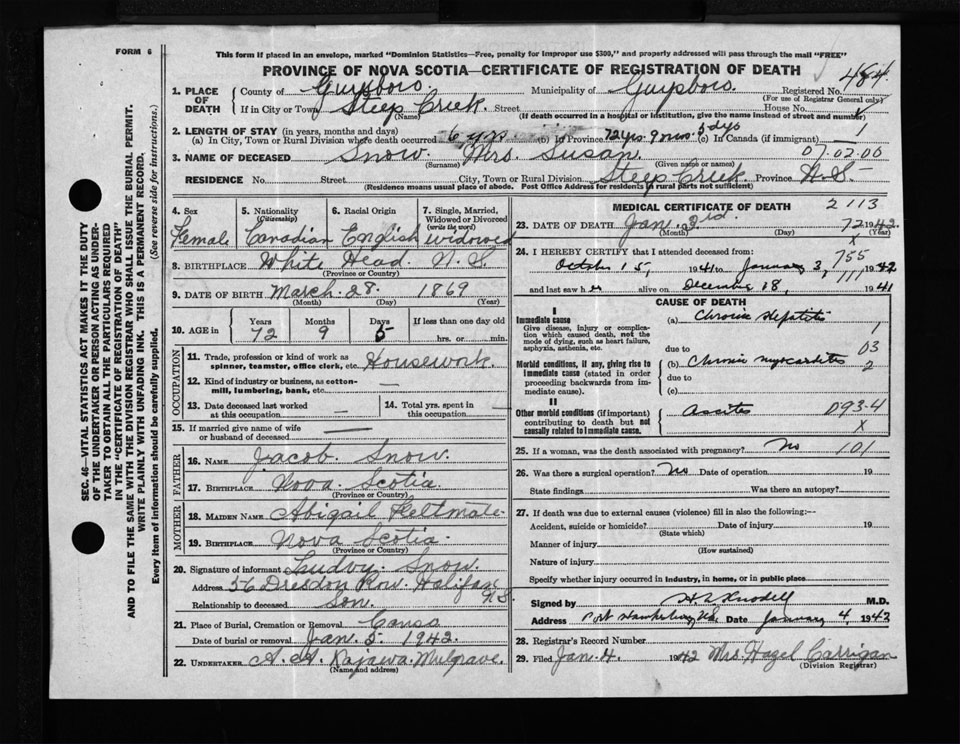 FORM 6
This form if placed in an envelope, marked "Dominion Statistics—Free, penalty for improper use $300," and properly addressed will pass through the mail "FREE"
PROVINCE OF NOVA SCOTIA—CERTIFICATE OF REGISTRATION OF DEATH
484
1. PLACE OF DEATH
County of Guysboro. Municipality of Guysboro. Registered No.
(For use of Registrar General only)
If in City or Town Steep Creek. Street House No.
(Name) (If death occurred in a hospital or institution, give the name instead of street and number)
2. LENGTH OF STAY (in years, months and days)
(a) In City, Town or Rural Division where death occurred 6 yrs. (b) In Province 72 yrs. 9 mos. 5 dys (c) In Canada (if immigrant) — 1
3. NAME OF DECEASED Snow. Mrs. Susan. 07.02.00
(Surname) (Given name or names)
RESIDENCE No. Street City, Town or Rural Division Steep Creek Province N.S.
(Residence means usual place of abode. Post Office Address for residents in rural parts not sufficient)
4. Sex Female
5. Nationality (Citizenship) Canadian
6. Racial Origin English
7. Single, Married, Widowed or Divorced (write the word) widowed
8. BIRTHPLACE White Head. N.S.
(Province or Country)
9. DATE OF BIRTH March. 28. 1869
(Month) (Day) (Year)
10. AGE in Years 72 Months 9 Days 5 If less than one day old hrs. or min.
OCCUPATION
11. Trade, profession or kind of work as spinner, teamster, office clerk, etc. Housework.
12. Kind of industry or business, as cotton-mill, lumbering, bank, etc. —
13. Date deceased last worked at this occupation —
14. Total yrs. spent in this occupation —
15. If married give name of wife or husband of deceased —
FATHER
16. NAME Jacob. Snow.
17. BIRTHPLACE Nova Scotia
(Province or Country)
MOTHER
18. MAIDEN NAME Abigail
19. BIRTHPLACE Nova Scotia
(Province or Country)
20. Signature of informant Snow.
Address 56 Dresdon Row. Halifax N.S.
Relationship to deceased Son.
21. Place of Burial, Cremation or Removal Canso
Date of burial or removal Jan. 5. 1942.
22. UNDERTAKER A. A. Mulgrave.
(Name and address)
MEDICAL CERTIFICATE OF DEATH 2 113
23. DATE OF DEATH Jan. 3rd. 72 1942
(Month) (Day) (Year)
X
24. I HEREBY CERTIFY that I attended deceased from: 755
October 15, 1941 to January 3, 1942
111
and last saw her alive on December 18, 1941
CAUSE OF DEATH
I
Immediate cause
Give disease, injury or complication which caused death, not the mode of dying, such as heart failure, asphyxia, asthenia, etc.
(a) Chronic Hepatitis 1
due to 03
Morbid conditions, if any, giving rise to immediate cause (stated in order proceeding backwards from immediate cause).
(b) Chronic myocarditis 2
due to
(c)
II
Other morbid conditions (if important) contributing to death but not causally related to immediate cause.
Ascites 093-4
X
25. If a woman, was the death associated with pregnancy? No 101
26. Was there a surgical operation? No Date of operation 19
State findings Was there an autopsy?
27. If death was due to external causes (violence) fill in also the following:—
Accident, suicide or homicide? Date of injury 19
(State which)
Manner of injury
(How sustained)
Nature of injury
Specify whether injury occurred in industry, in home, or in public place
Signed by M.D.
Address Port Hawkesbury N.S. Date January 4, 1942
28. Registrar's Record Number
29. Filed Jan. 4. 1942 Mrs. Hazel Carrigan
(Division Registrar)
SEC. 46—VITAL STATISTICS ACT MAKES IT THE DUTY
OF THE UNDERTAKER OR PERSON ACTING AS UNDER-
TAKER TO OBTAIN ALL THE PARTICULARS REQUIRED
IN THE "CERTIFICATE OF REGISTRATION OF DEATH"
AND TO FILE THE SAME WITH THE DIVISION REGISTRAR WHO SHALL ISSUE THE BURIAL PERMIT.
WRITE PLAINLY WITH UNFADING INK. THIS IS A PERMANENT RECORD.
Every item of information should be carefully supplied. (See reverse side for instructions.)